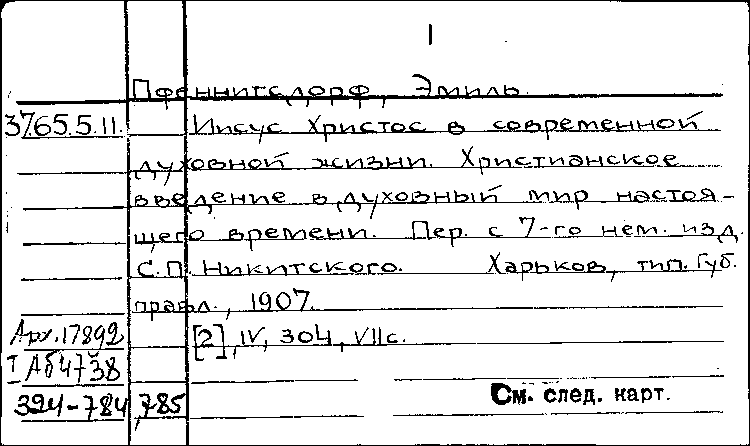 1
Пфеннигсдорф, Эмиль.
3765.5.11. Иисус Христос в современной
духовной жизни. Христианское
введение в духовный мир настоя-
щего времени. Пер. с 7-го нем. изд.
С.П. Никитского. Харьков, тип. Губ.
правл., 1907.
Арх.17892 [2], IV, 304, VII с.
I Аб4738
394-784,785 См. след. карт.